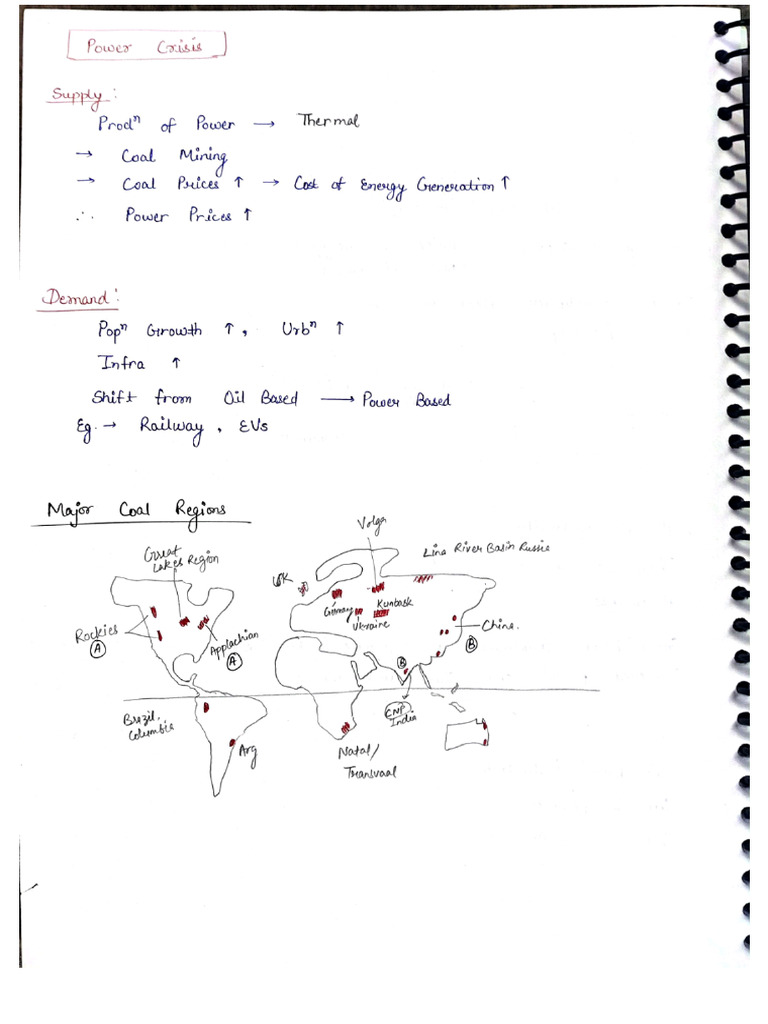 Power Crisis
Supply:
Prodⁿ of Power → Thermal
→ Coal Mining
→ Coal Prices ↑ → Cost of Energy Generation ↑
∴ Power Prices ↑
Demand:
Popⁿ Growth ↑, Urbⁿ ↑
Infra ↑
Shift from Oil Based → Power Based
Eg. → Railway, EVs
Major Coal Regions
Volga
Great
Lakes Region
Lina River Basin Russia
UK
Germany
Kunbask
Ukraine
Rockies
A
Applachian
A
China.
B
B
CNP
India
Brazil,
Columbia
Arg
Natal/
Transvaal